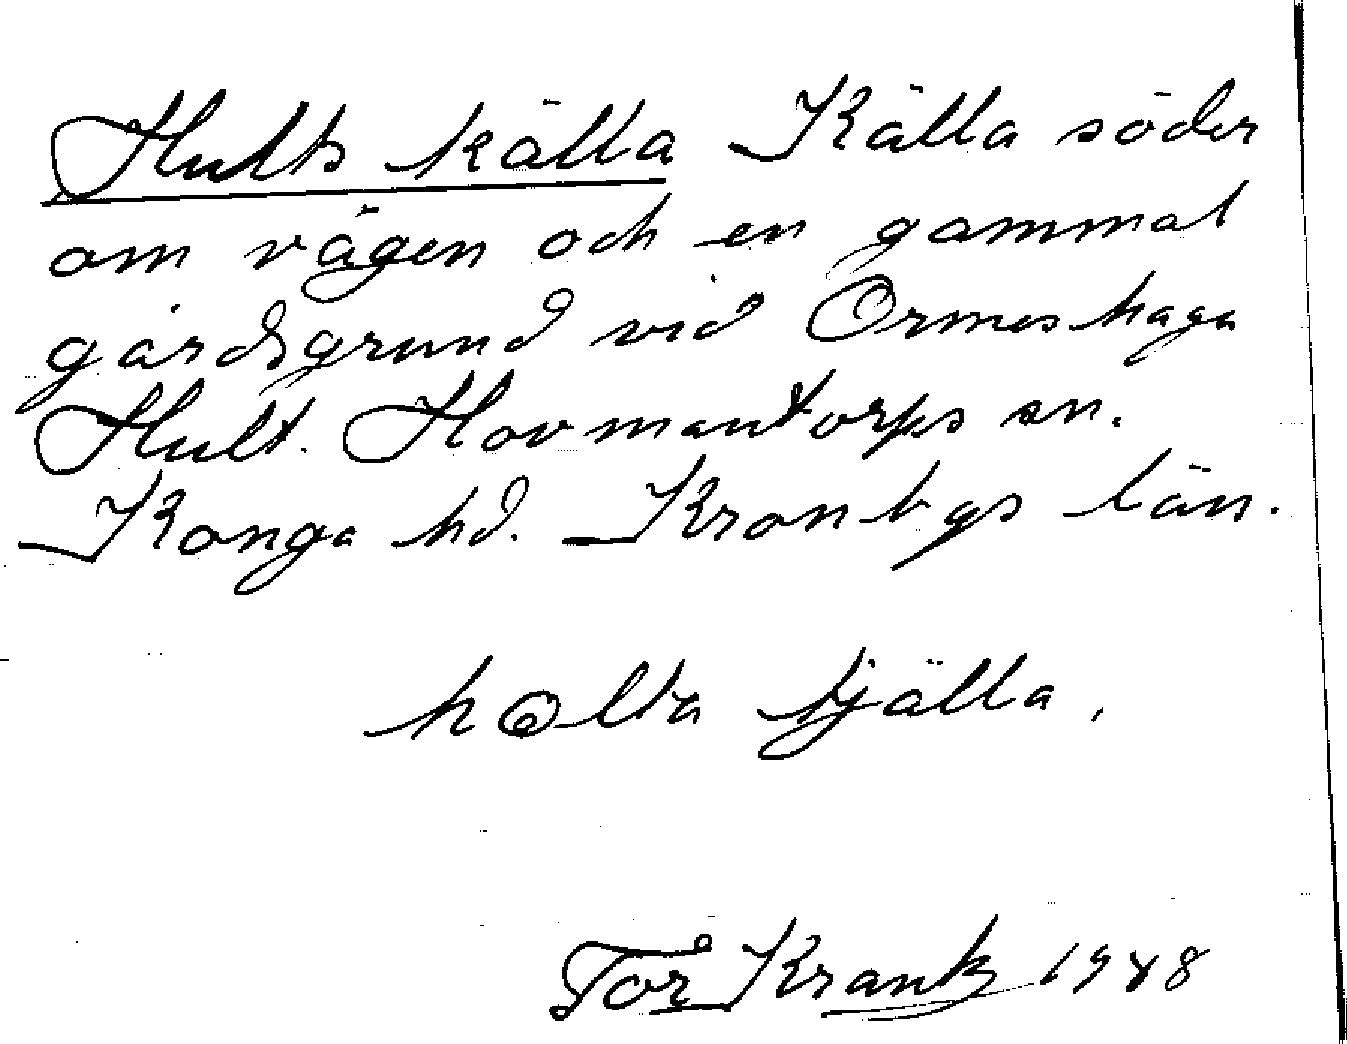 Hults källa Källa söder
om vägen och en gammal
gårdsgrund vid Ormeshaga
Hult. Hovmantorps sn.
Konga hd. Kronbgs län.
kjälla.
Tor Krank 1948